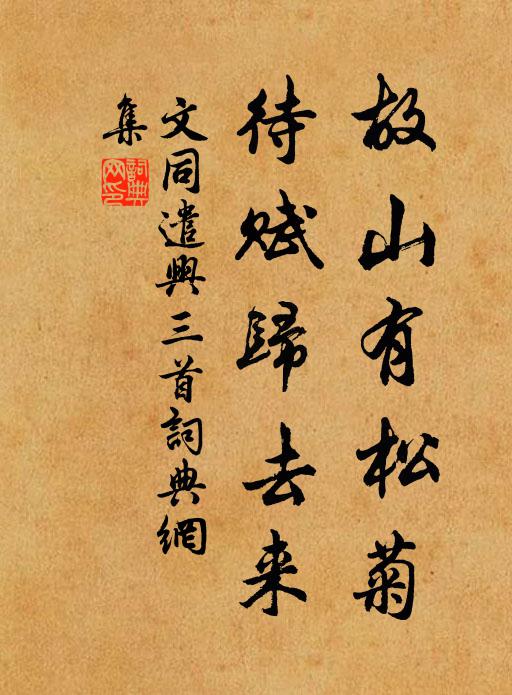 故山有松菊
待赋歸去来
文同遣興三首詞典網
集
詞典
网印